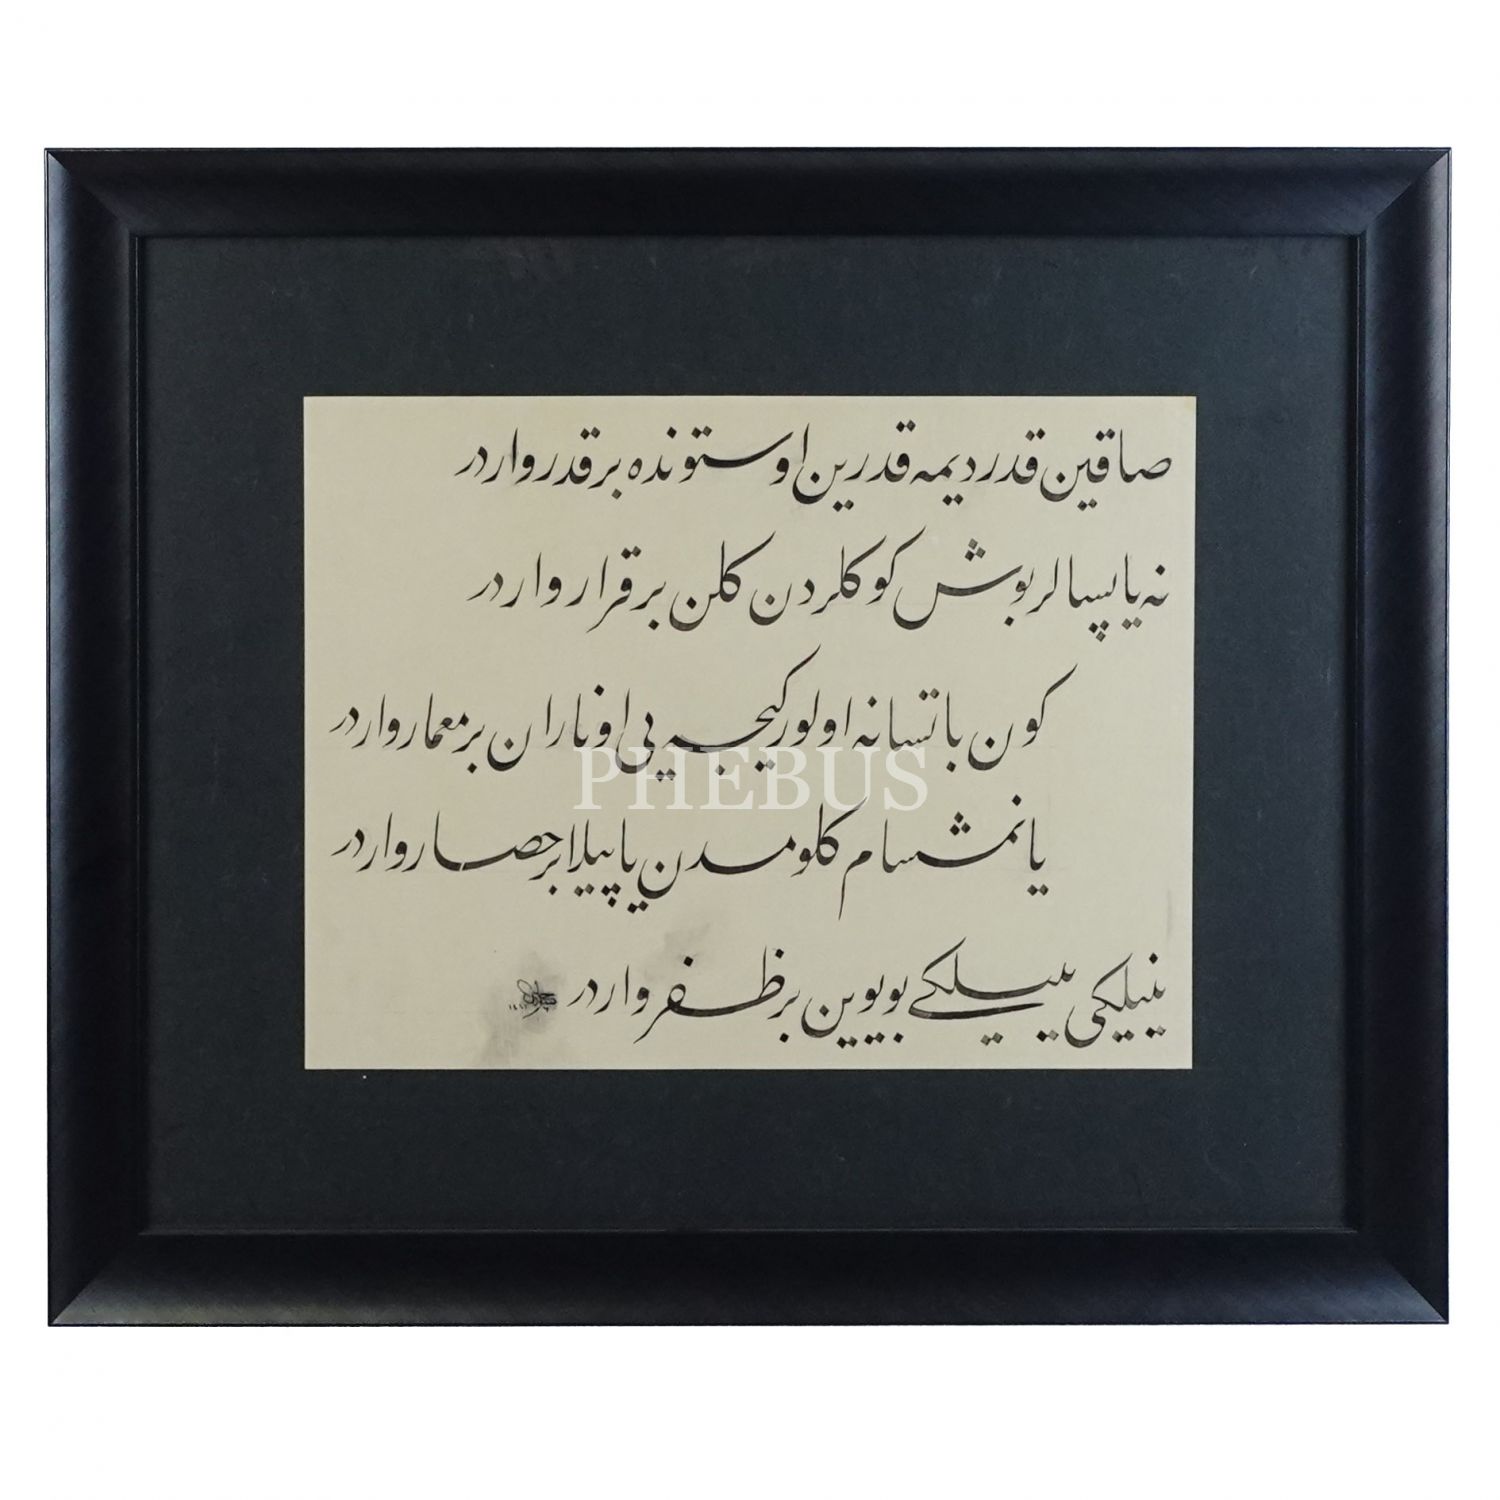 صاقین قدر دیمه قدرین اوستونده بر قدر واردر
نه یاپسالر بوش کوکلردن کلن بر قرار واردر
کون باتسا نه اولور کیجه یی اوناران بر معمار واردر
PHEBUS
یانمشسام کلومدن یاپیلا بر حصار واردر
ینیلکی ینیلکی بویوین بر ظفر واردر